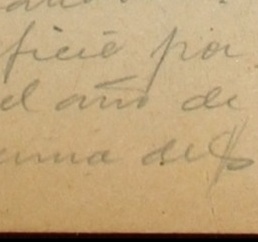 ficie por
el año de
uma de $